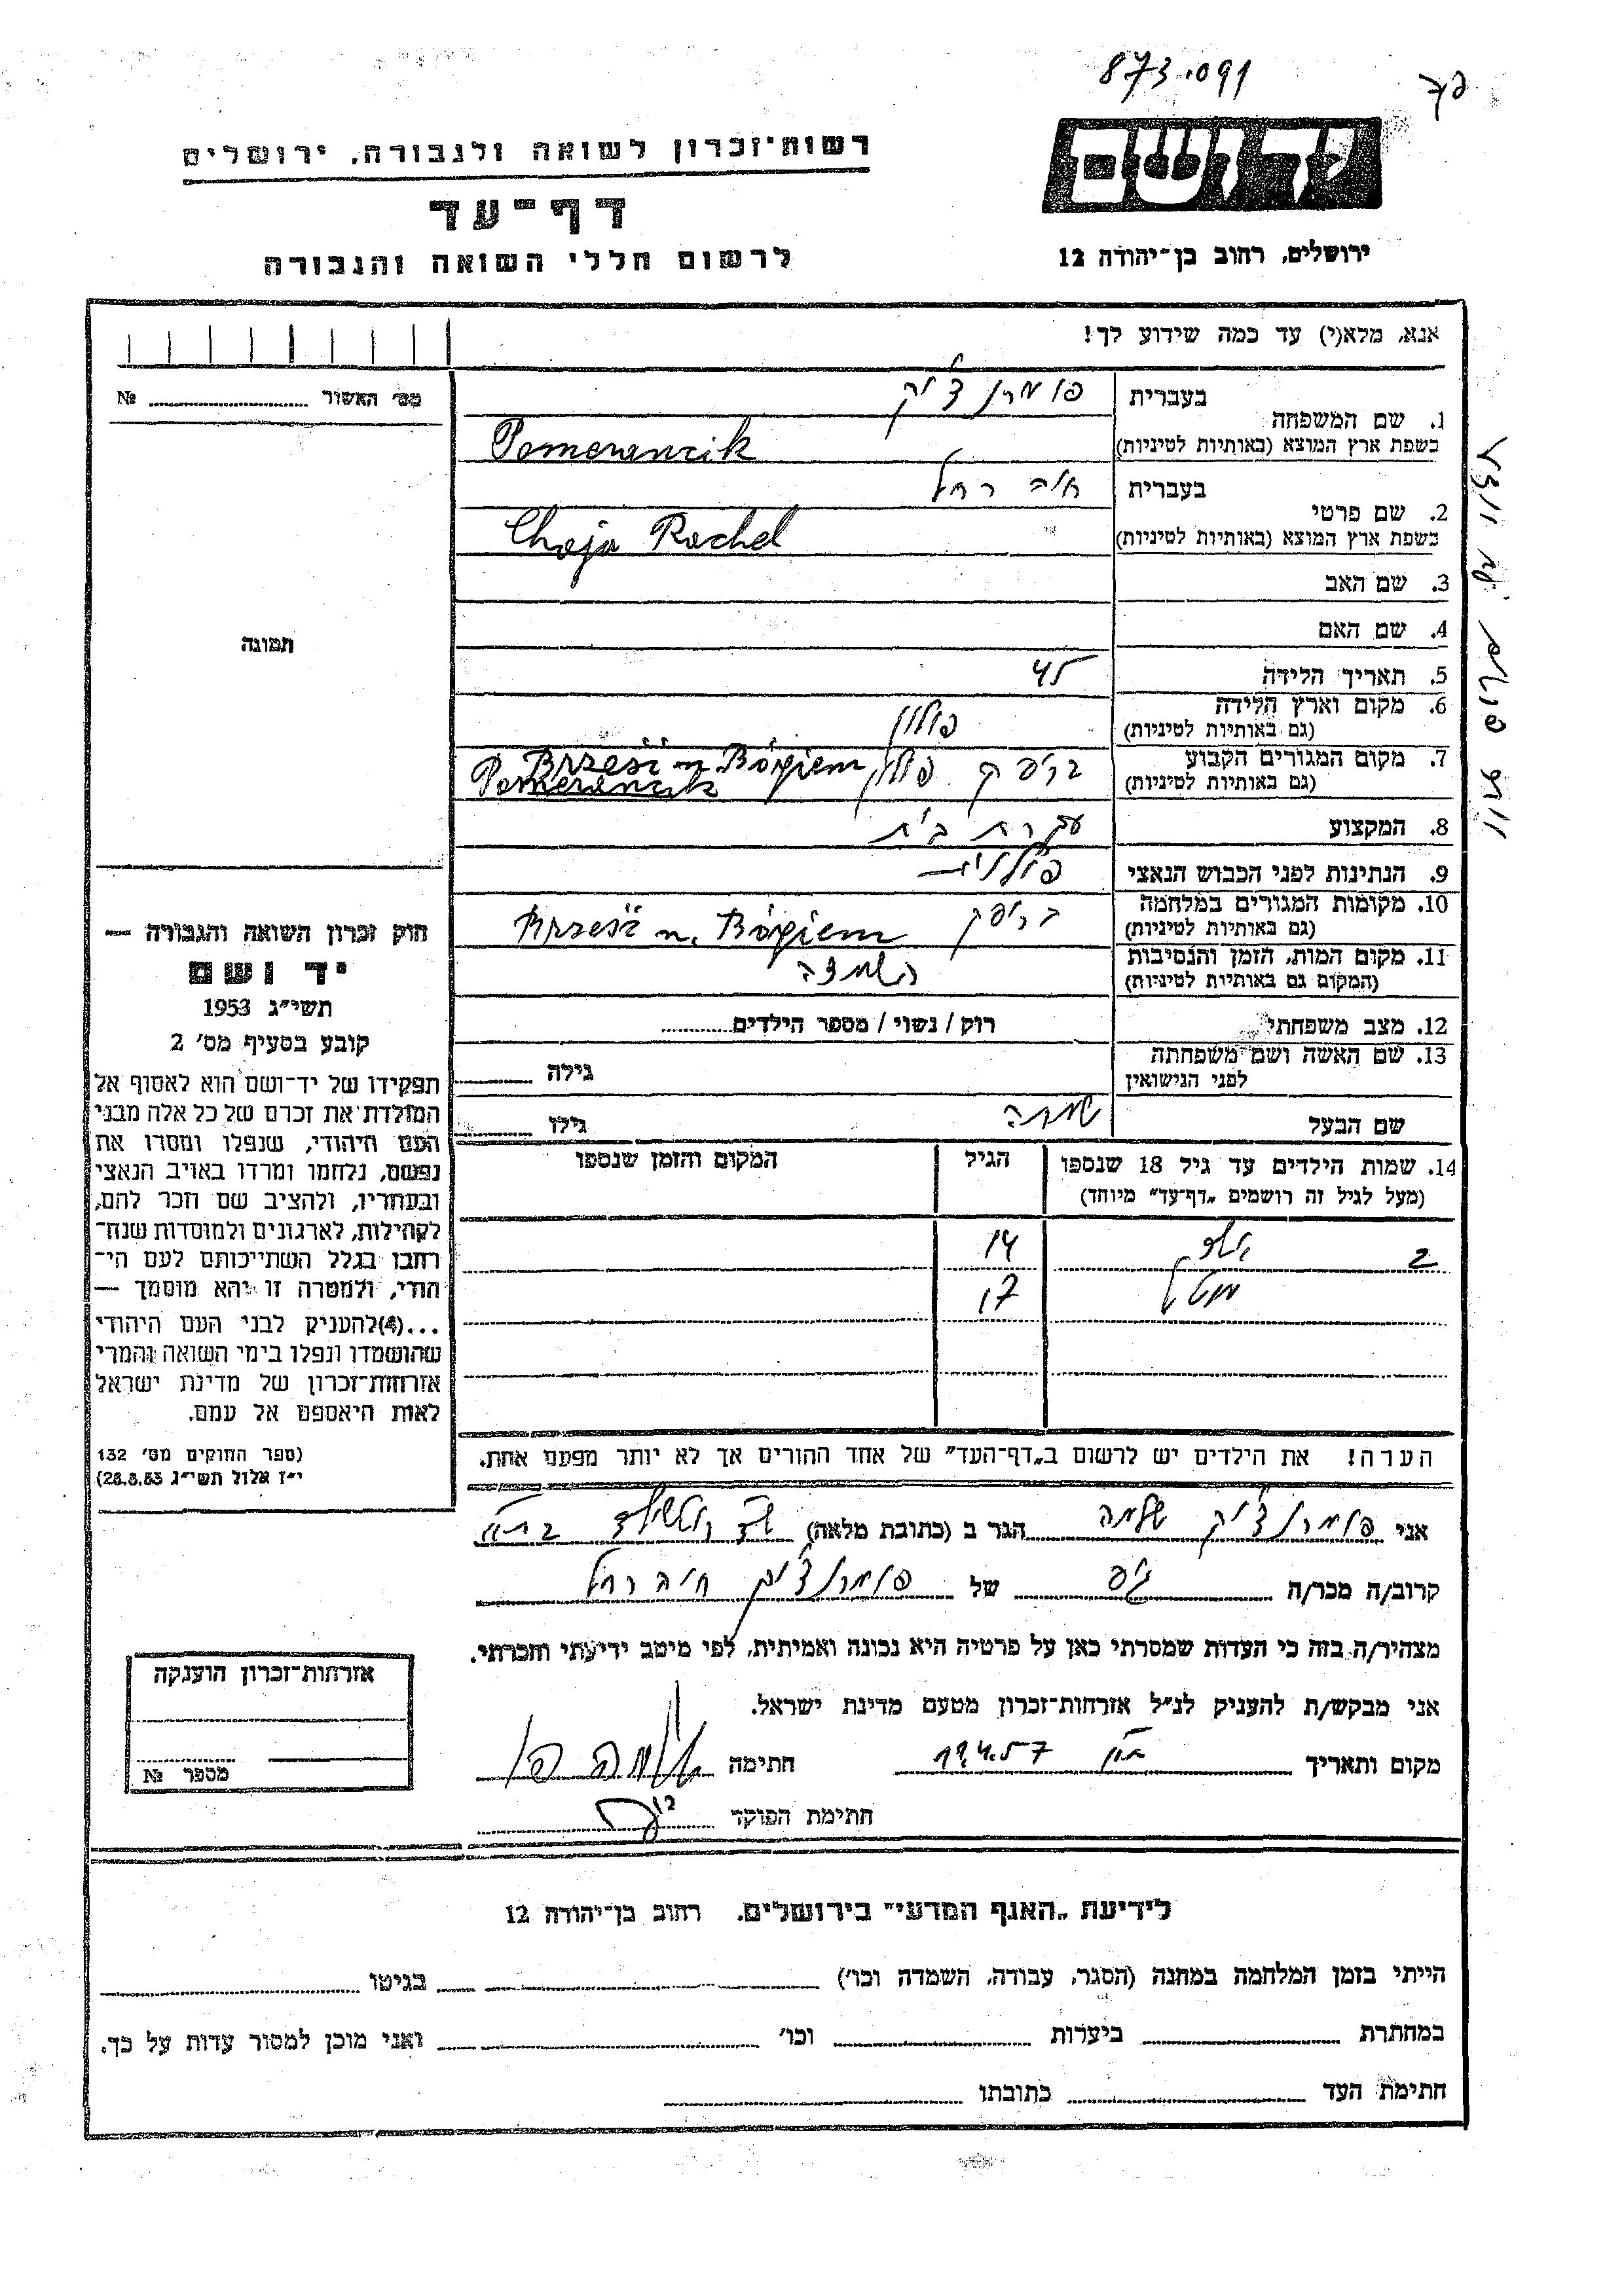 873.091
יד ושם
רשות־זכרון לשואה ולגבורה, ירושלים
דף־עד
לרשום חללי השואה והגבורה
ירושלים, רחוב בן־יהודה 12
אנא, מלא(י) עד כמה שידוע לך!
מס׳ האשור № ........
1. שם המשפחה
בעברית פומרנצ׳יק
בשפת ארץ המוצא (באותיות לטיניות) Pomerancik
2. שם פרטי
בעברית חיה רחל
בשפת ארץ המוצא (באותיות לטיניות) Chaja Rachel
3. שם האב
4. שם האם
תמונה
5. תאריך הלידה 45
6. מקום וארץ הלידה פולין
(גם באותיות לטיניות)
7. מקום המגורים הקבוע בריסק פולין Brześć n. Bógiem
(גם באותיות לטיניות) Pomerancik
8. המקצוע עקרת בית
9. הנתינות לפני הכבוש הנאצי פולנית
10. מקומות המגורים במלחמה בריסק Brześć n. Bógiem
(גם באותיות לטיניות)
11. מקום המות, הזמן והנסיבות השמדה
(המקום גם באותיות לטיניות)
12. מצב משפחתי רוק / נשוי / מספר הילדים........
13. שם האשה ושם משפחתה
לפני הנישואין
גילה ........
שם הבעל שלמה גילו ........
14. שמות הילדים עד גיל 18 שנספו הגיל המקום והזמן שנספו
(מעל לגיל זה רושמים „דף־עד” מיוחד)
2 14
17
הערה! את הילדים יש לרשום ב„דף־העד” של אחד ההורים אך לא יותר מפעם אחת.
חוק זכרון השואה והגבורה —
יד ושם
תשי״ג 1953
קובע בסעיף מס׳ 2
תפקידו של יד־ושם הוא לאסוף אל
המולדת את זכרם של כל אלה מבני
העם היהודי, שנפלו ומסרו את
נפשם, נלחמו ומרדו באויב הנאצי
ובעוזריו, ולהציב שם וזכר להם,
לקהילות, לארגונים ולמוסדות שנח־
רבו בגלל השתייכותם לעם הי־
הודי, ולמטרה זו יהא מוסמך —
...(4)להעניק לבני העם היהודי
שהושמדו ונפלו בימי השואה והמרי
אזרחות־זכרון של מדינת ישראל
לאות היאספם אל עמם.
(ספר החוקים מס׳ 132
י״ז אלול תשי״ג 28.8.53)
אני פומרנצ׳יק שלמה הגר ב (כתובת מלאה)
קרוב/ה מכר/ה גיס של פומרנצ׳יק חיה רחל
מצהיר/ה בזה כי העדות שמסרתי כאן על פרטיה היא נכונה ואמיתית, לפי מיטב ידיעתי והכרתי.
אני מבקש/ת להעניק לנ״ל אזרחות־זכרון מטעם מדינת ישראל.
מקום ותאריך 19.4.57 חתימה
חתימת הפוקד
אזרחות־זכרון הוענקה
מספר №
לידיעת „האגף המדעי” בירושלים. רחוב בן־יהודה 12
הייתי בזמן המלחמה במחנה (הסגר, עבודה, השמדה וכו׳) בגיטו
במחתרת ביערות וכו׳ ואני מוכן למסור עדות על כך.
חתימת העד כתובתו